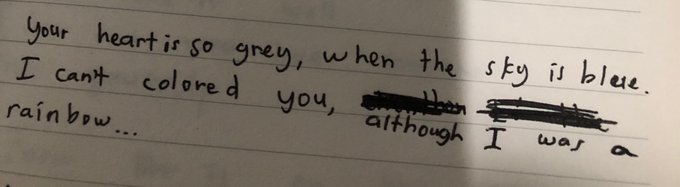 Your heart is so grey, when the sky is blue.
I can't colored you, although I was a
rainbow...